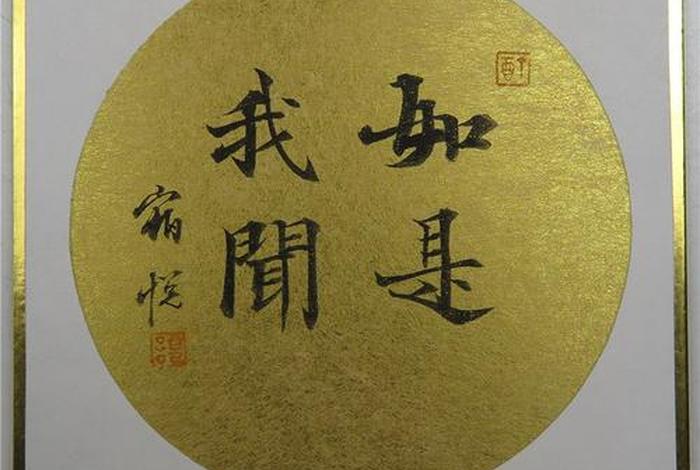 如是
我聞
宿悅